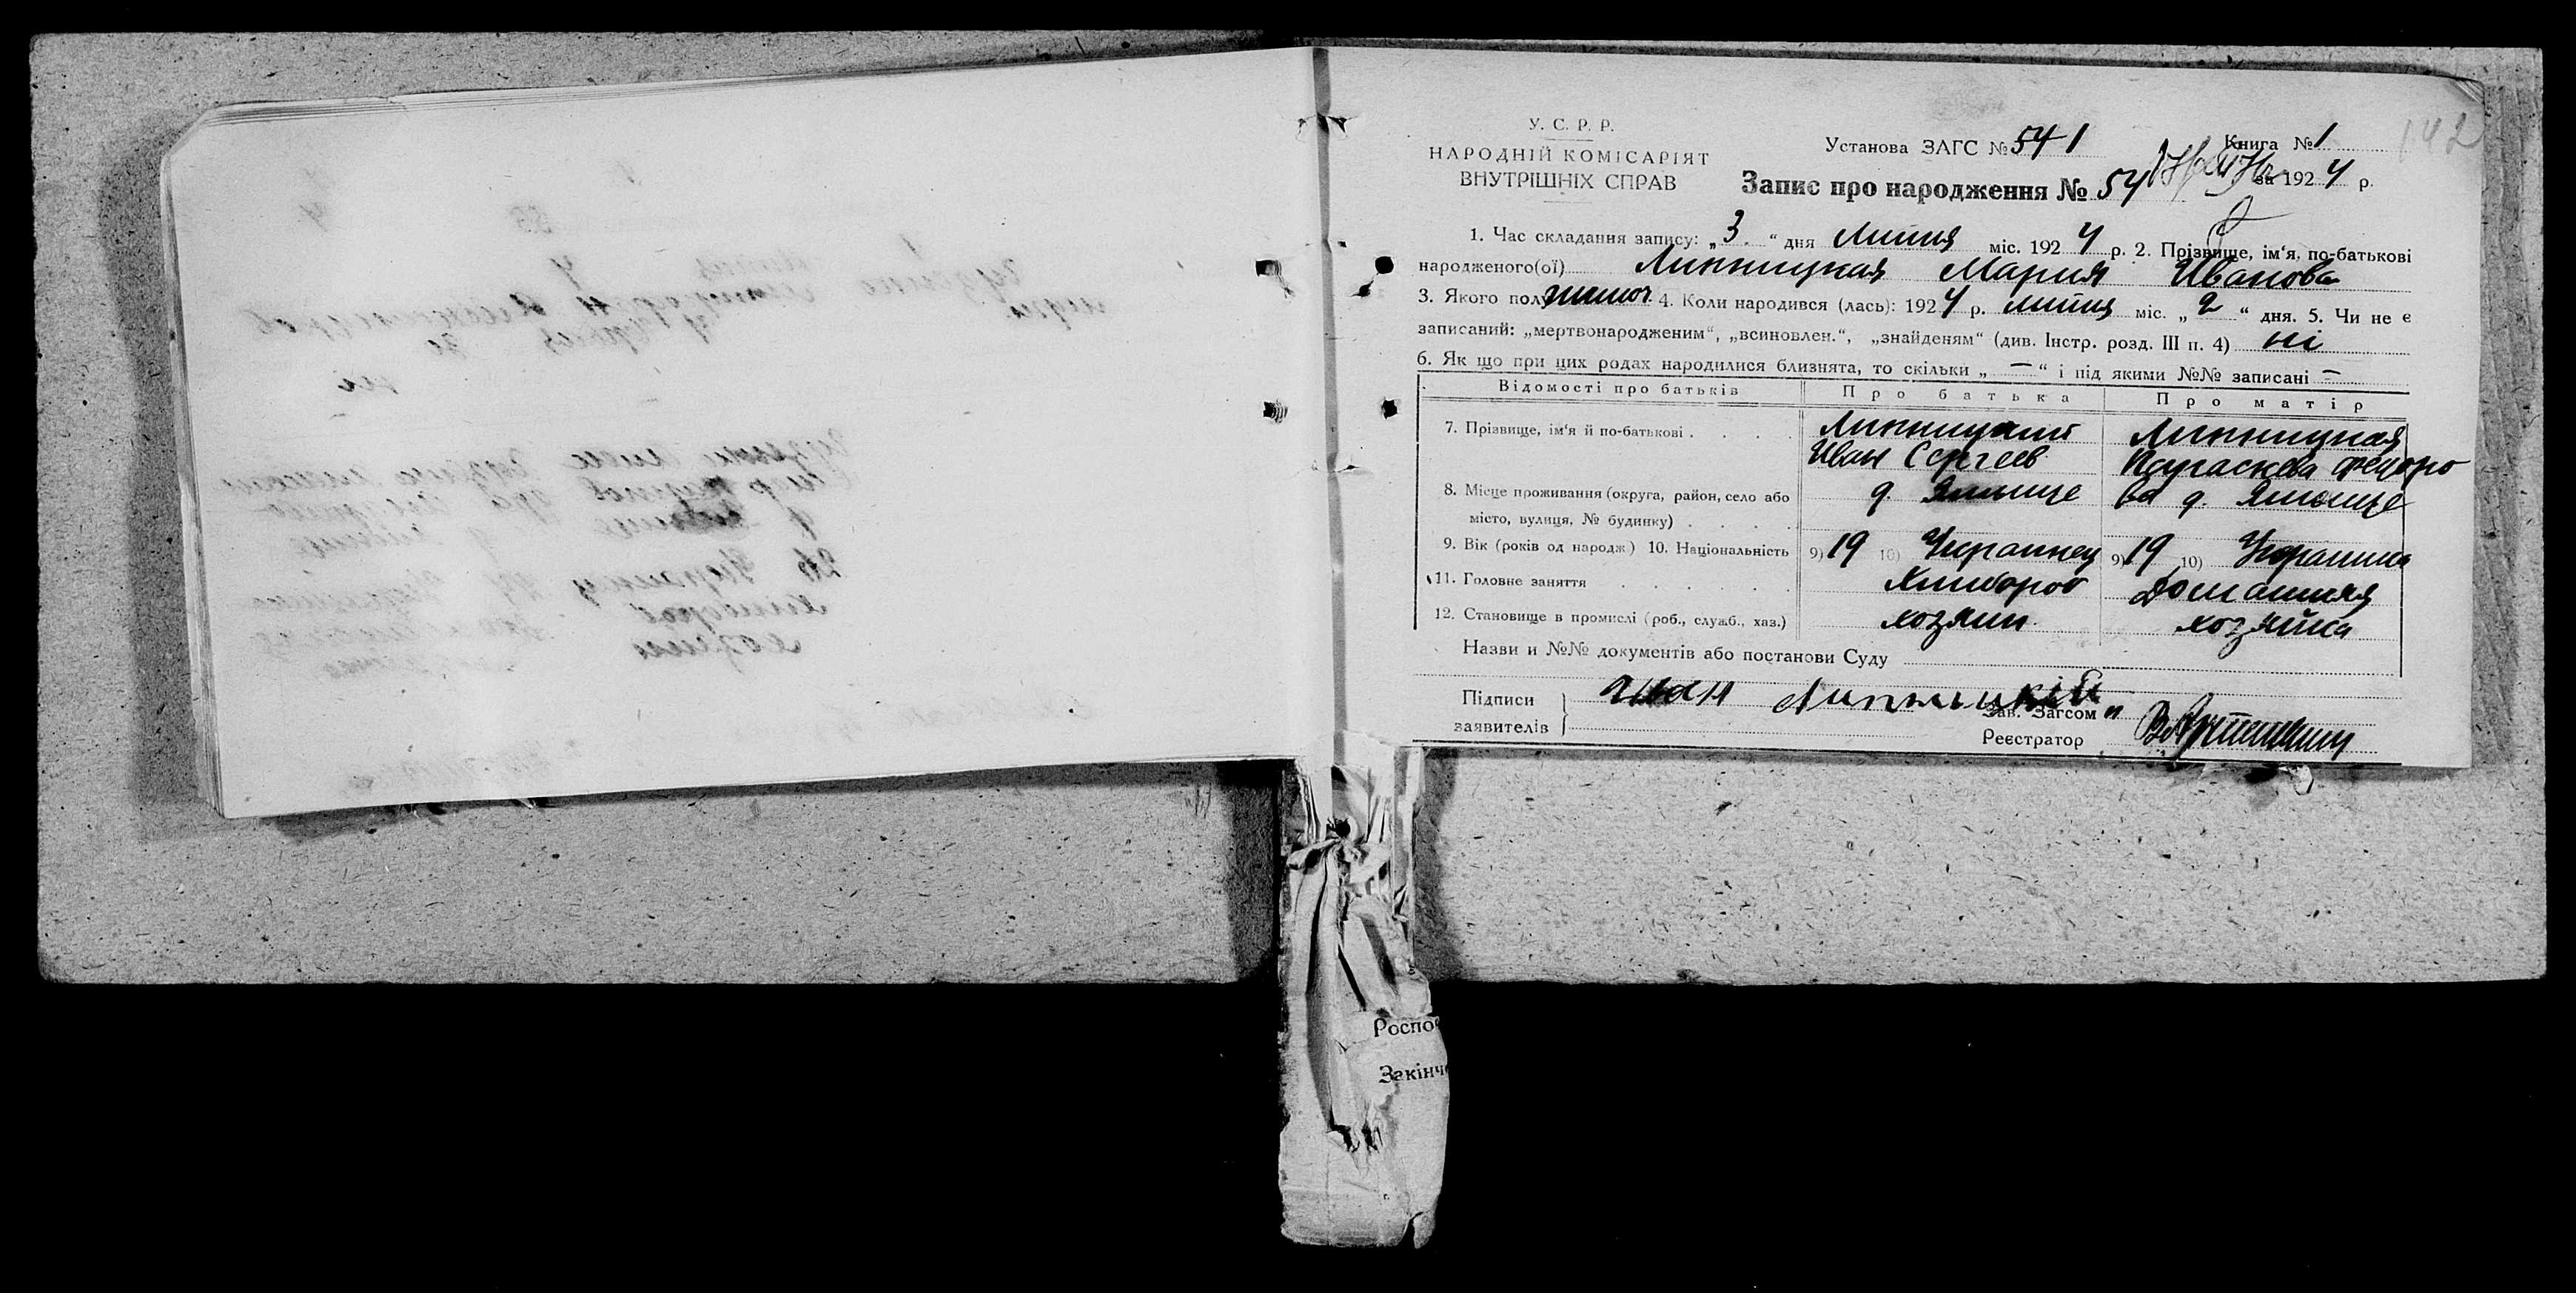 142
У. С. Р. Р.
НАРОДНІЙ КОМІСАРІЯТ
ВНУТРІШНІХ СПРАВ
Установа ЗАГС № 541
Книга № 1
Запис про народження № 54
за 1924 р.
1. Час складання запису: „3“ дня Липня міс. 1924 р. 2. Прізвище, ім‘я, по-батькові
народженого(ої) Липницкая Мария Иванова
3. Якого полу жіноч. 4. Коли народився (лась): 1924 р. липня міс. „2“ дня. 5. Чи не є
записаний: „мертвонародженим“, „всиновлен.“, „знайденям“ (див. Інстр. розд. III п. 4) ні
6. Як що при цих родах народилися близнята, то скільки „ — “ і під якими №№ записані —
Відомості про батьків Про батька Про матір
7. Прізвище, ім‘я й по-батькові . . . . Липницкий Липницкая
Иван Сергеев Параскева Федоро
8. Місце проживання (округа, район, село або д. ва д.
місто, вулиця, № будинку) . . . .
9. Вік (років од народж.) 10. Національність 9) 19 10) Украинец 9) 19 10) Украинка
11. Головне заняття . . . . Хлібороб Домашняя
12. Становище в промислі (роб., служб., хаз.) хозяин. хозяйка
Назви и №№ документів або постанови Суду
Підписи
заявителів
Иван Липницкій
Зав. Загсом „
Реєстратор
Роспо
Закінч